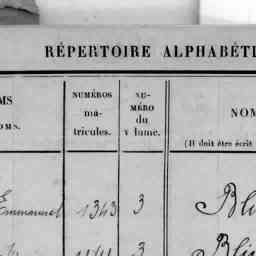 RÉPERTOIRE ALPHABÉTI
MS
OMS.
NUMÉROS
ma-
tricules.
NU-
MÉRO
du
v lume.
NOM
(Il doit être écrit
Emmanuel 1343 3 Bli
3 Blin